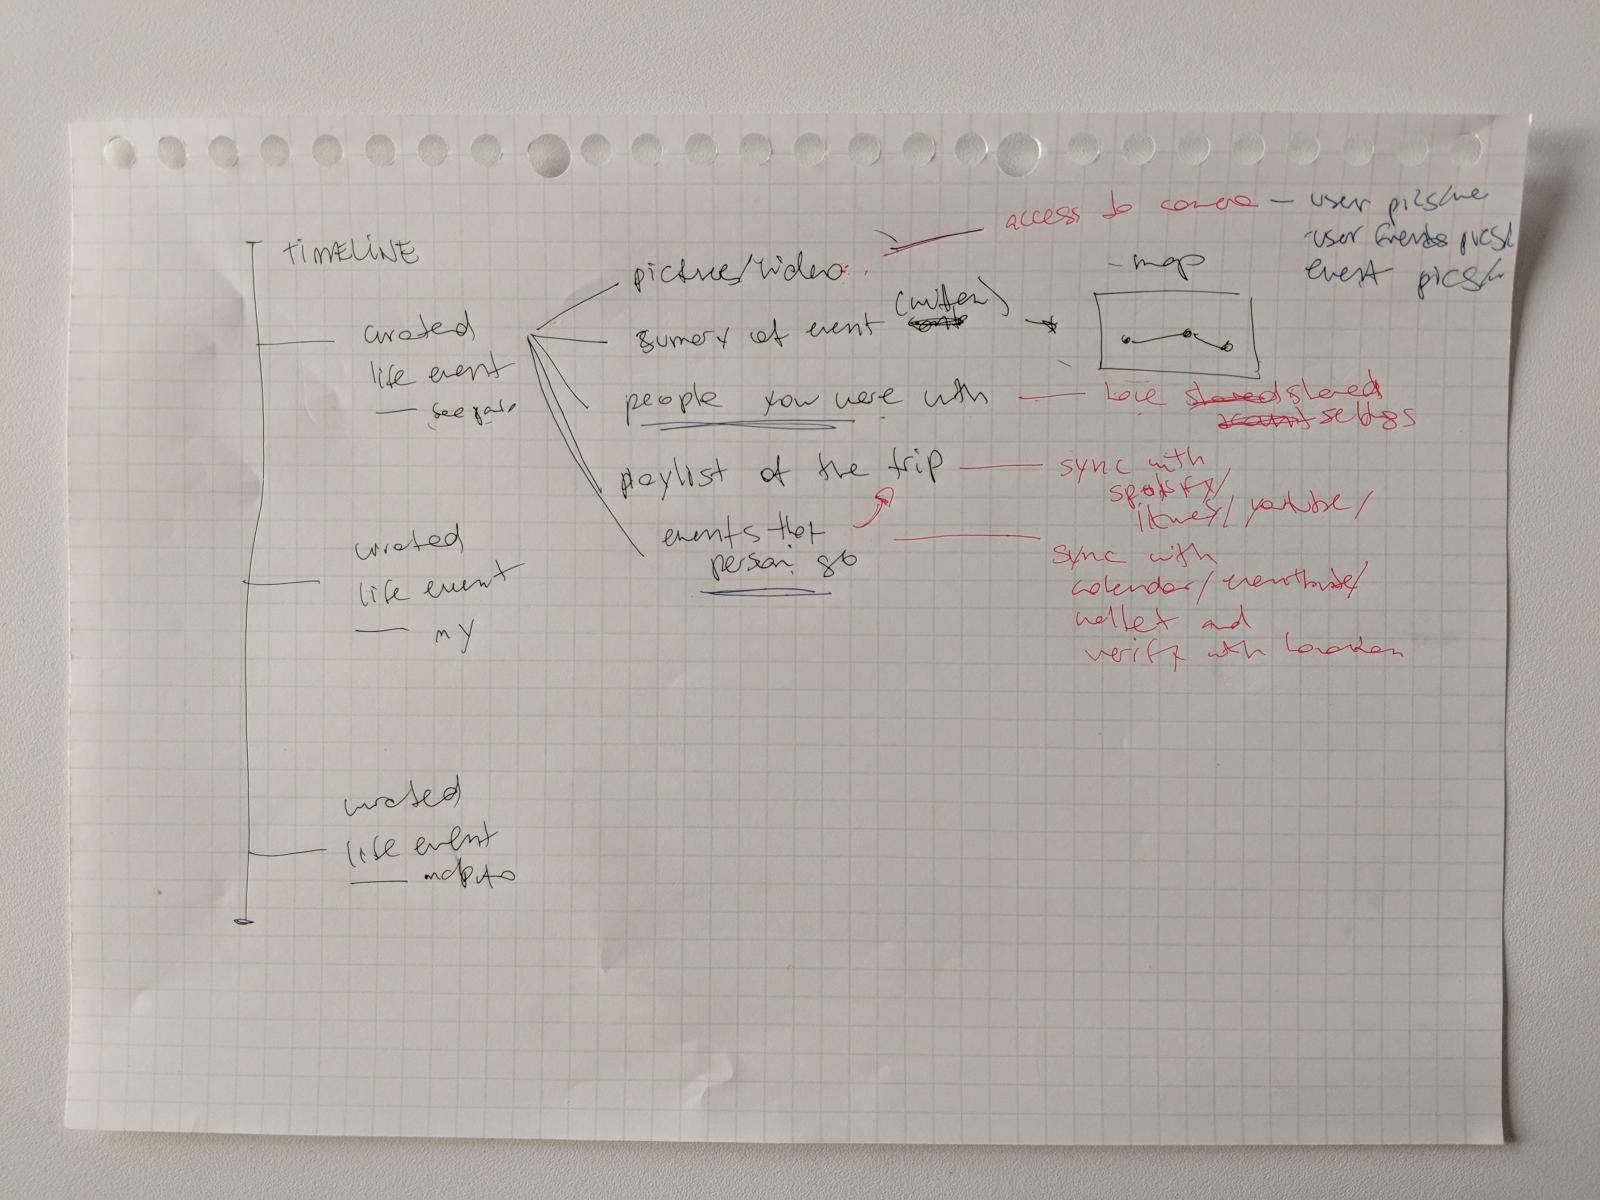 TIMELINE
curated
life event
curated
life event
— ny
curated
life event
— maputo
pictures/video
sumary of event (written)
people you were with
playlist of the trip
events that
person go
access to camera — user pics/me
- user friends pics/
event pics/
- map
have shared
settings
sync with
spotify/
itunes/ youtube/
sync with
calendar/ eventbrite/
wallet and
verify with location